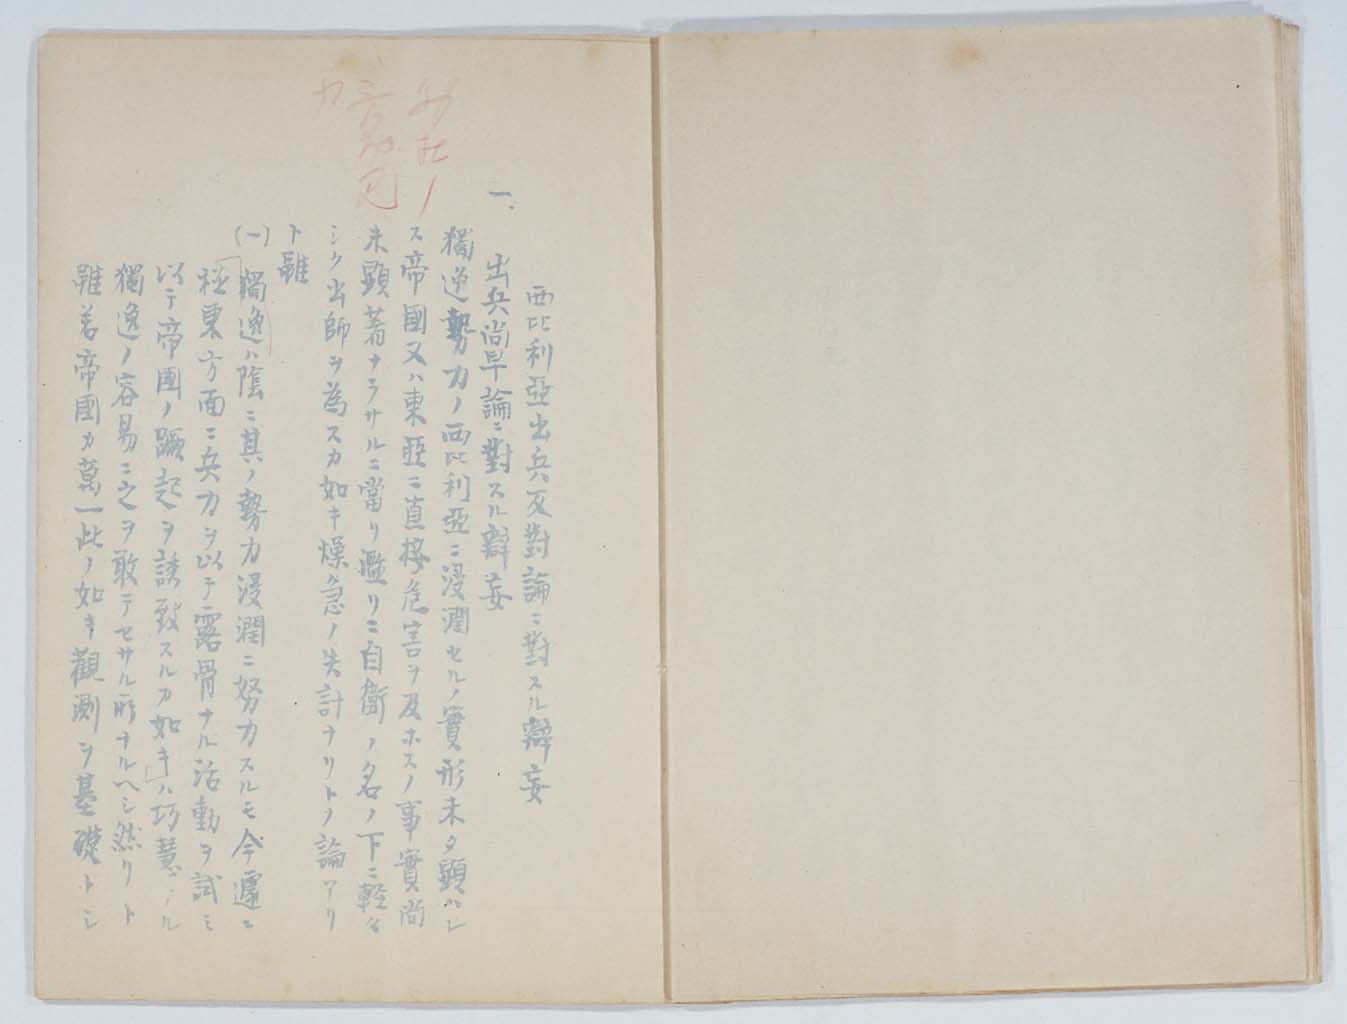 西比利亞出兵反對論ニ對スル辯妄
一、
出兵尚早論ニ對スル辯妄
獨逸勢力ノ西比利亞ニ浸潤セルノ實形未タ顯ハレ
ス帝國又ハ東亞ニ直接危害ヲ及ホスノ事實尚
未顯著ナラサルニ當リ濫リニ自衛ノ名ノ下ニ輕々
シク出師ヲ為スカ如キ燥急ノ失計ナリトノ論アリ
ト雖
(一)獨逸ハ陰ニ其ノ勢力浸潤ニ努力スルモ今遽ニ
極東方面ニ兵力ヲ以テ露骨ナル活動ヲ試ミ
以テ帝國ノ蹶起ヲ誘致スルカ如キ」ハ巧慧ナル
獨逸ノ容易ニ之ヲ敢テセサル所ナルヘシ然リト
雖若帝國カ萬一此ノ如キ觀測ヲ基礎トシ